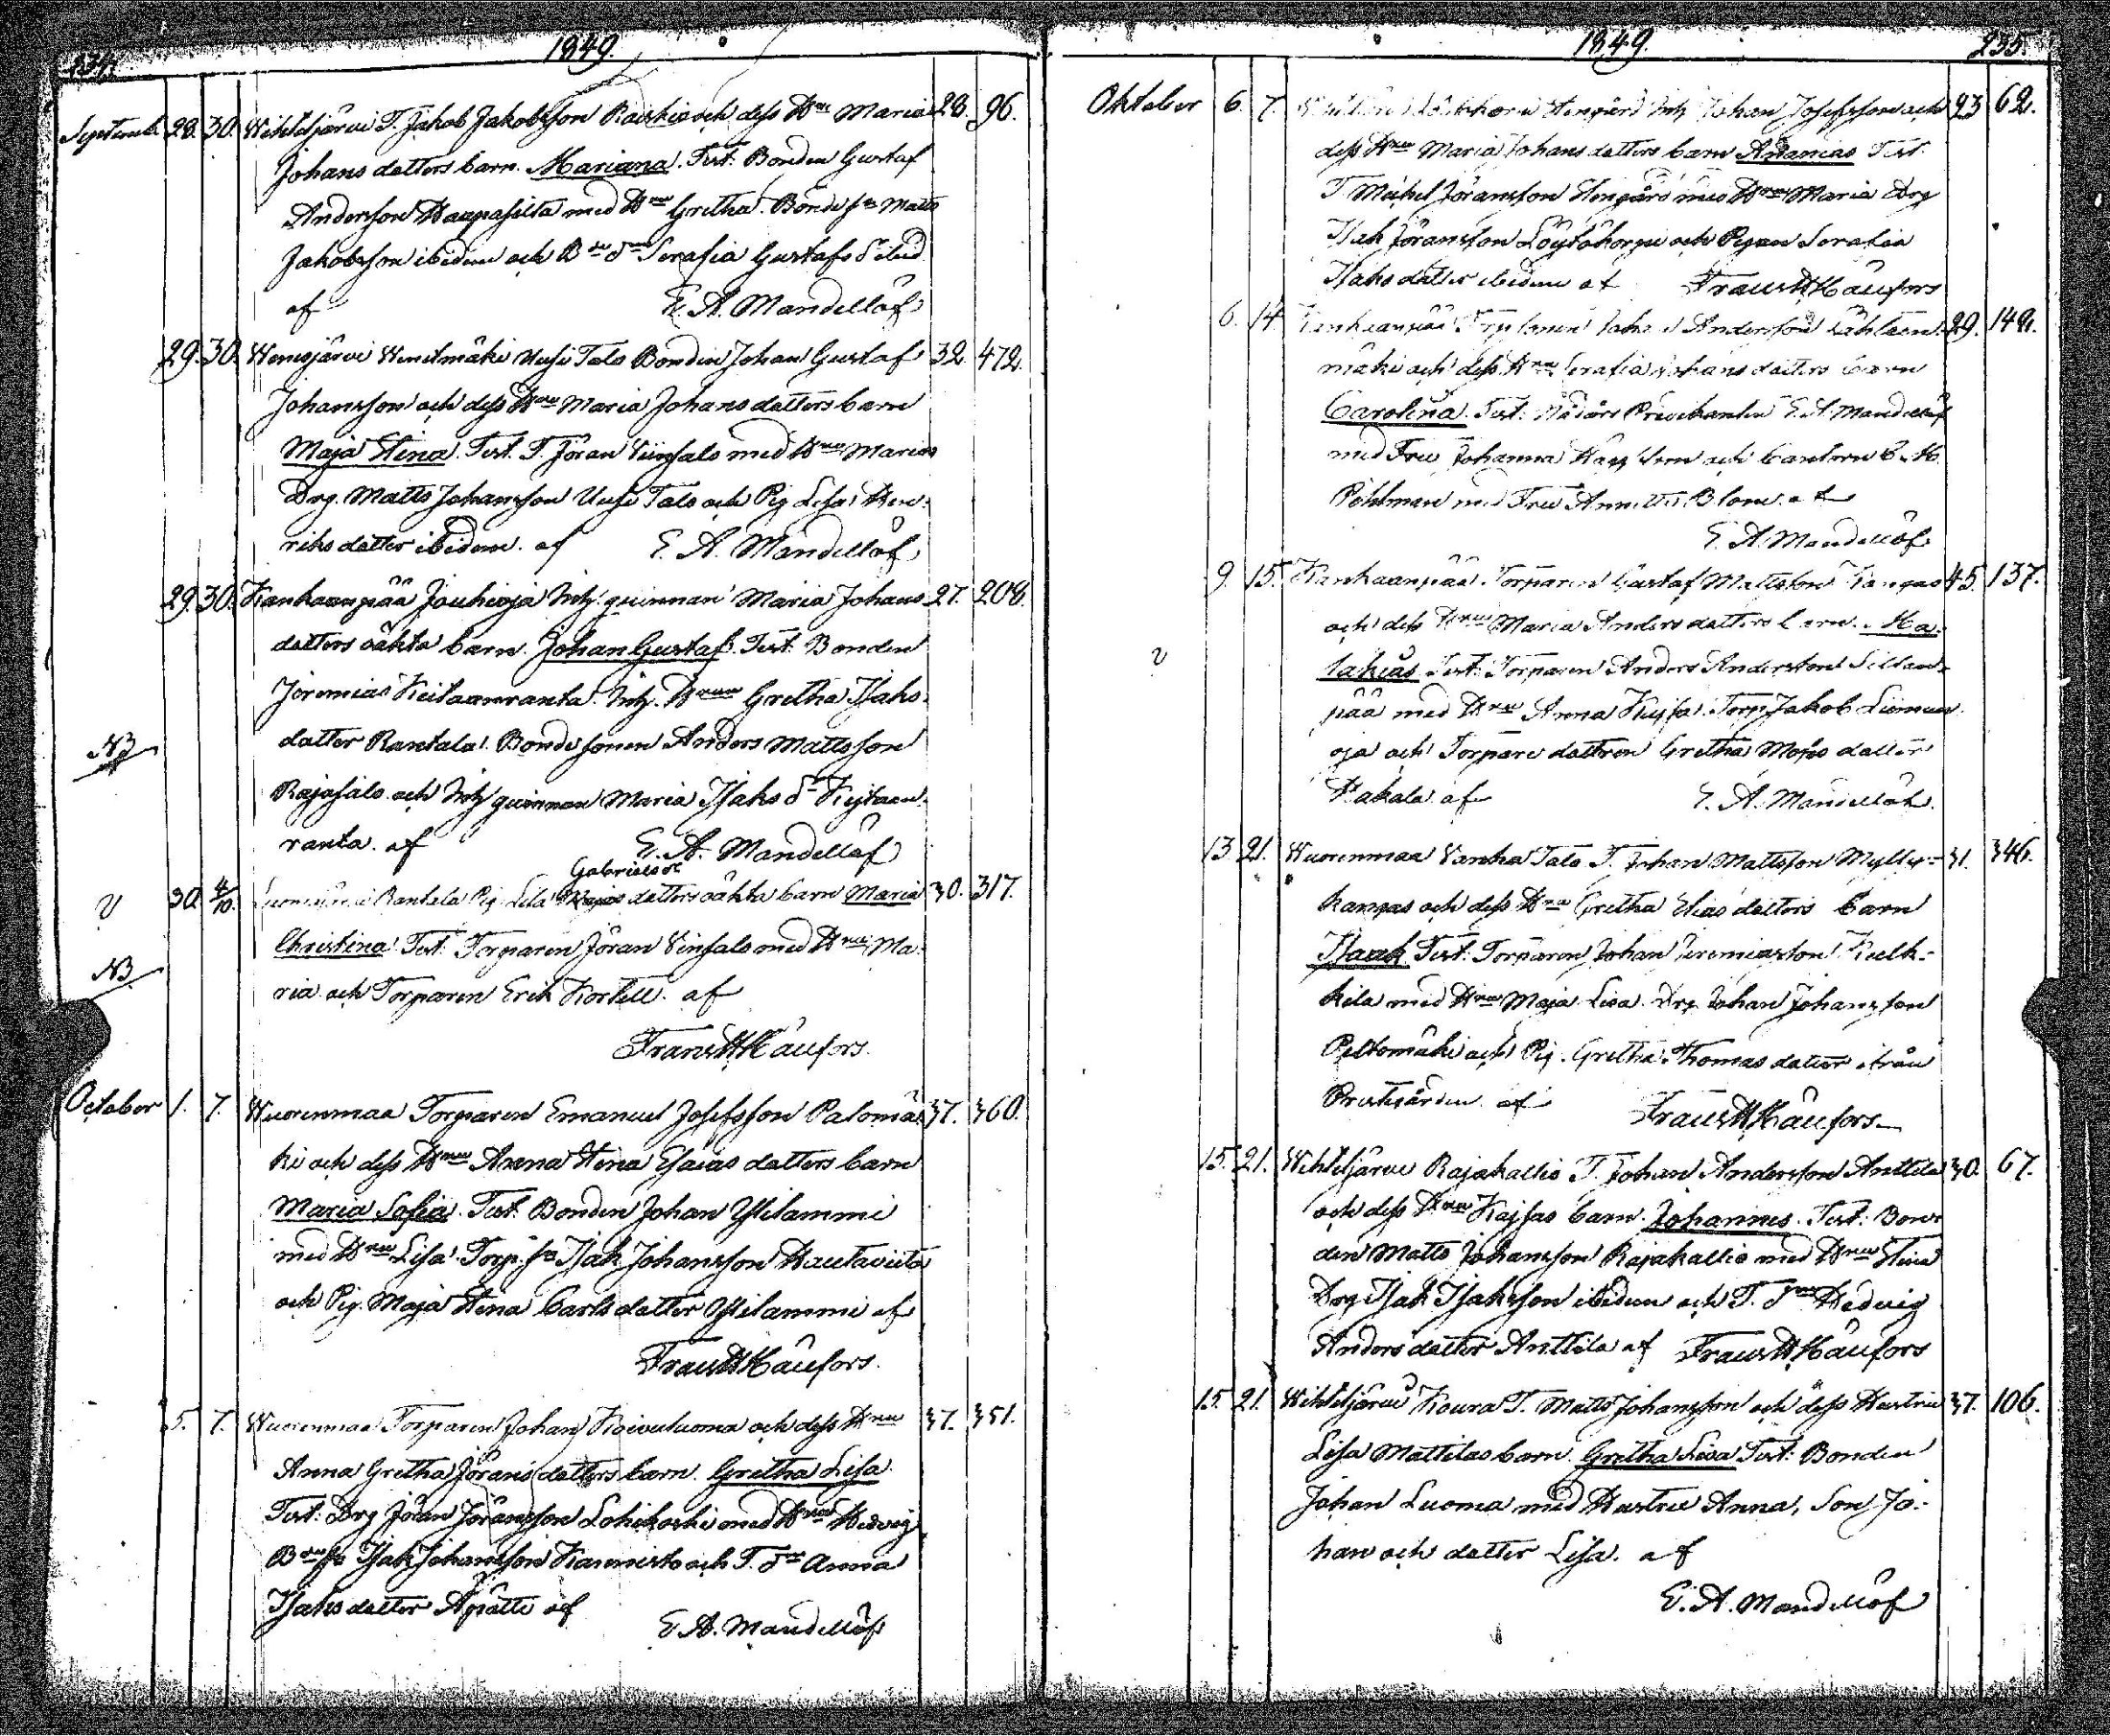 234. 1849.
Septemb. 28. 30. Wihteljärvi T. Jakob Jakobsson Raiskio och dess Hru Maria 28. 96.
Johans dotters barn. Mariana. Test: Bonden Gustaf
Andersson Haapasilta med Hru Gretha. Bonde sn Matts
Jakobsson ibidem och Bde dr Serafia Gustafs d ibid
af E. A. Mandellöf
29. 30. Wenesjärvi Uusi Talo Bonden Johan Gustaf 32. 472.
Johansson och dess Hru Maria Johans dotters barn
Maja Stina. Test. T. Jöran Viinsalo med Hru Maria
Drg. Matts Johansson Uusi Talo och Pig Lisa Hen-
riks dotter ibidem. af E. A. Mandellöf
29. 30. Kankaanpää Jouhioja Inh. quinnan Maria Johans 27. 208.
dotters oäkta barn. Johan Gustaf. Test. Bonden
Jeremias Keitaanranta. Inh. Hrun Gretha Isaks-
dotter Rantala. Bonde sonen Anders Mattsson
NB
Rajasalo och Inh quinnan Maria Isaks dr
ranta. af E. A. Mandellöf
Gabriels dr
30. 4/10. Rantala Pig Lisa dotters oäkta barn Maria 30. 317.
Christina. Test. Torparen Jöran Vinsalo med Hru Ma-
NB
ria och Torparen Erik Kortell. af
Frans H Käufors.
October 1. 7. Wuorenmaa Torparen Emanuel Josefsson Palomä- 37. 360.
ki och dess Hru Anna Stina Esaias dotters barn
Maria Sofia. Test. Bonden Johan Ylilammi
med Hru Lisa. Torp. sn Isak Johansson Hautaviita
och Pig. Maja Stina Carls dotter Ylilammi af
Frans H Käufors.
5. 7. Wuorenmaa Torparen Johan Koivuluoma och dess Hru 37. 351.
Anna Gretha Jörans dotters barn. Gretha Lisa.
Test: Drg Jöran Jöransson Lohikoski med Hru Hedvig
Bde sn Isak Johansson Kannisto och T. dr Anna
Isaks dotter af
E. A. Mandellöf
1849. 235.
Oktober 6. 7. Johan Josefsson och 23 62.
dess Hru Maria Johans dotters barn Ananias Test.
T. Mickel Jöransson Stengård med Hru Maria Drg
Isak Jöransson Löytökorpi och Pigan Serafia
Isaks dotter ibidem af Frans H Käufors
6. 14. Kankaanpää Andersson Lähteen- 29. 149.
mäki och dess Hru Serafia Johans dotters barn
Carolina. Test: Nådårs Predikanten E. A. Mandellöf
med Fru Johanna och Cantorn
Pöhlman med Fru Blom. af
E. A. Mandellöf
9. 15. Kankaanpää Torparen Gustaf Mattsson Kangas 45. 137.
och dess Hru Maria Anders dotters barn. Ma-
lakias Test: Torparen Anders Andersson Sillan-
pää med Hru Anna Kajsa. Torp Jakob
oja och Torpare dottren Gretha dotter
af E. A. Mandellöf.
13. 21. Wuorenmaa Vanha Talo T. Johan Mattsson Mylly- 31. 346.
kangas och dess Hru Gretha Elias dotters barn
Isaak Test: Torparen Johan Jeremiasson
kila med Hru Maja Lisa. Drg Johan Johansson
Peltomäki och Pig. Gretha Thomas dotter ifrån
Prestgården. af Frans H Käufors.
15. 21. Wihteljärvi Rajakallio T. Johan Andersson Anttila 30. 67.
och dess Hru Kajsas barn. Johannes. Test: Bon-
den Matts Johansson Rajakallio med Hru Stina
Drg Isak Isaksson ibidem och T. dr Hedvig
Anders dotter Anttila af Frans H Käufors
15. 21. Wihteljärvi Koura T. Matts Johansson och dess Hustru 37. 106.
Lisa Mattilas barn. Gretha Lisa Test: Bonden
Johan Luoma med Hustru Anna, Son Jo-
han och dotter Lisa. af
E. A. Mandellöf